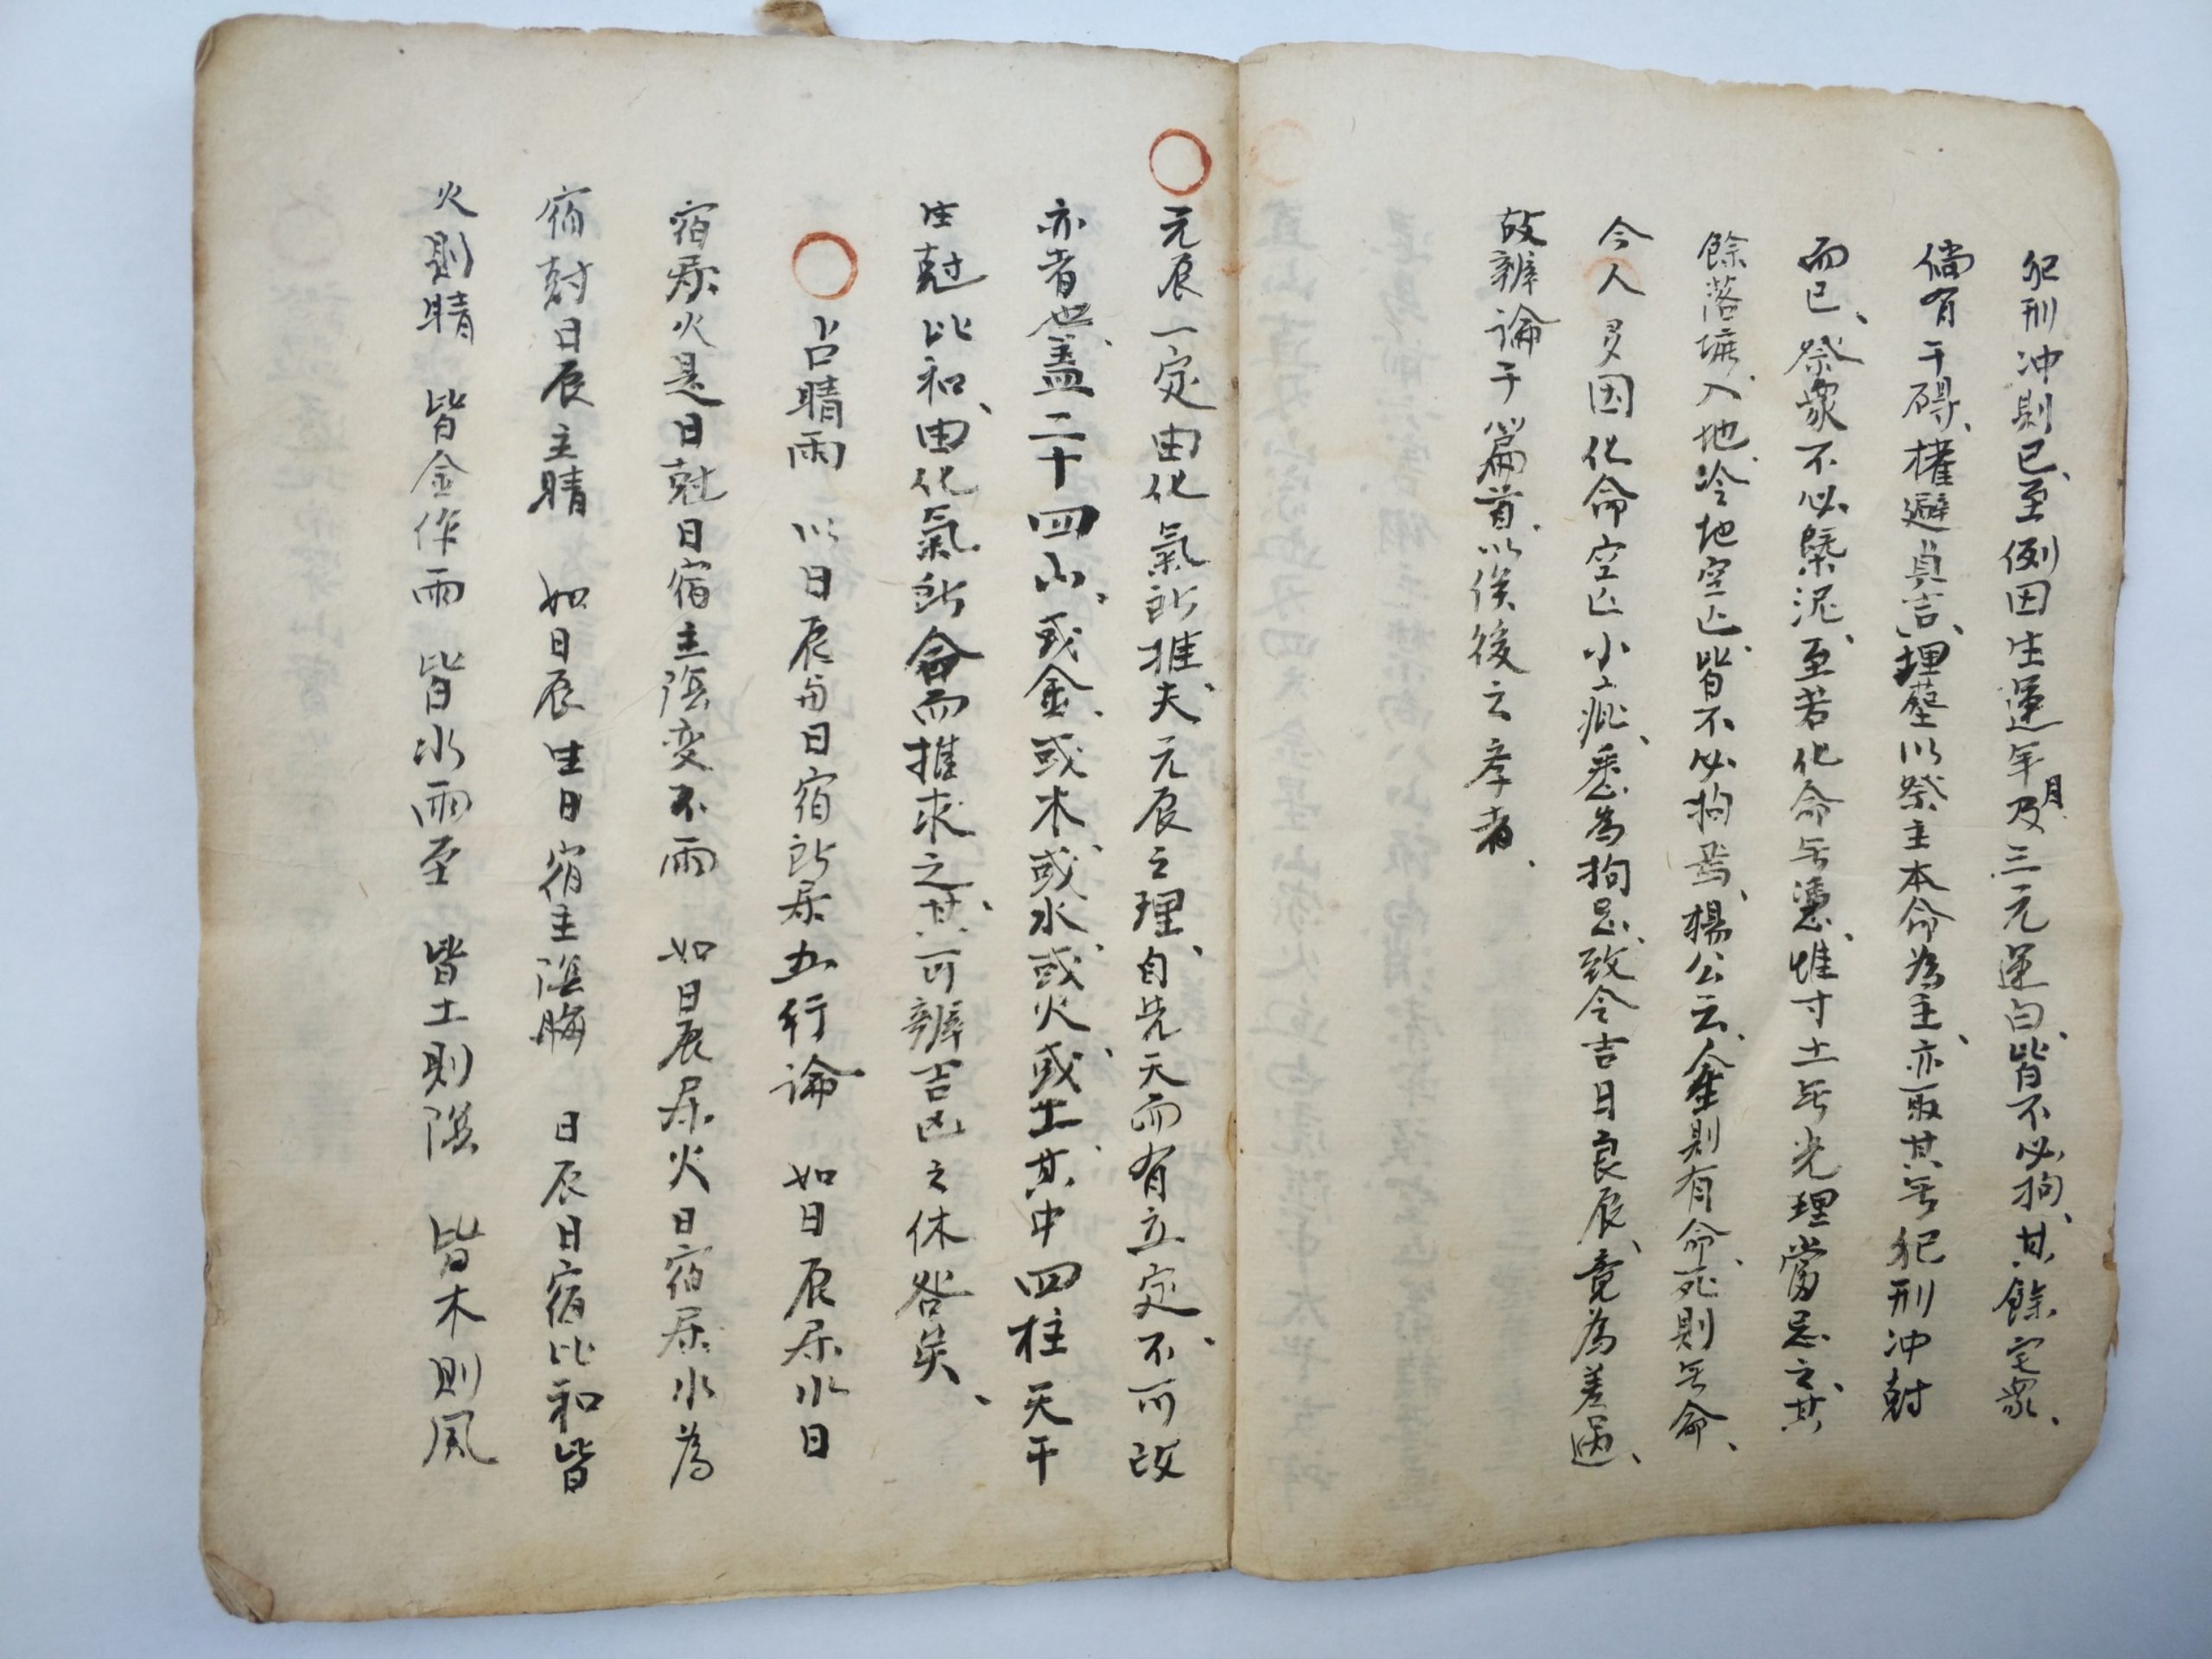 犯刑冲則已、至例因生運年及月三元運白、皆不必拘、其餘宅眾、
倘有干碍、權避真吉、理塟以祭主本命為主、亦取其無犯刑冲尅
而已、祭眾不必槩泥、至若化命無憑、惟寸土無光理當忌之、其
餘落壙、入地、冷地空亡、皆不必拘焉、楊公云、生則有命、死則無命、
今人多因化命空亡小疵、悉為拘忌、致令吉日良辰、竟為差遇、
故辨論于篇首、以俟後之孝者、
元辰一定由化氣所推、夫元辰之理、自先天而有立定、不可改
亦者也、蓋二十四山、或金、或木、或水、或火、或土、其中四柱天干
生尅比和、由化氣所合而推求之、其可辨吉凶之休咎矣、
占晴雨 以日辰与日宿所居五行論 如日辰居水日
宿居火是日尅日宿主陰变不雨 如日辰居火日宿居水為
宿尅日辰主晴 如日辰生日宿主陰晦 日辰日宿比和皆
火則晴 皆金作雨 皆水雨至 皆土則陰 皆木則風